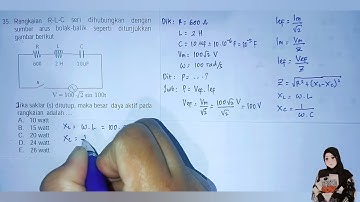 35. Rangkaian R-L-C seri dihubungkan dengan
sumber arus bolak-balik seperti ditunjukkan
gambar berikut
R L C
600 2 H 10μF
V = 100√2 sin 100t
Jika saklar (s) ditutup, maka besar daya aktif pada
rangkaian adalah....
A. 10 watt
B. 15 watt
C. 20 watt
D. 24 watt
E. 26 watt
X_L = ω . L = 100 .
X_C =
Dik : R = 600 Ω
L = 2 H
C = 10 μF = 10.10⁻⁶ F = 10⁻⁵ F
Vm = 100√2 V
ω = 100 rad/s
Dit : P = ... ?
Jwb : P = Vef . Ief
Vef = Vm/√2 = 100√2 V/√2 = 100 V
Ief = Im/√2
Im = Vm/Z
Ief = Vef/Z
Z = √R² + (X_L - X_C)²
X_L = ω . L
X_C = 1/ω . C